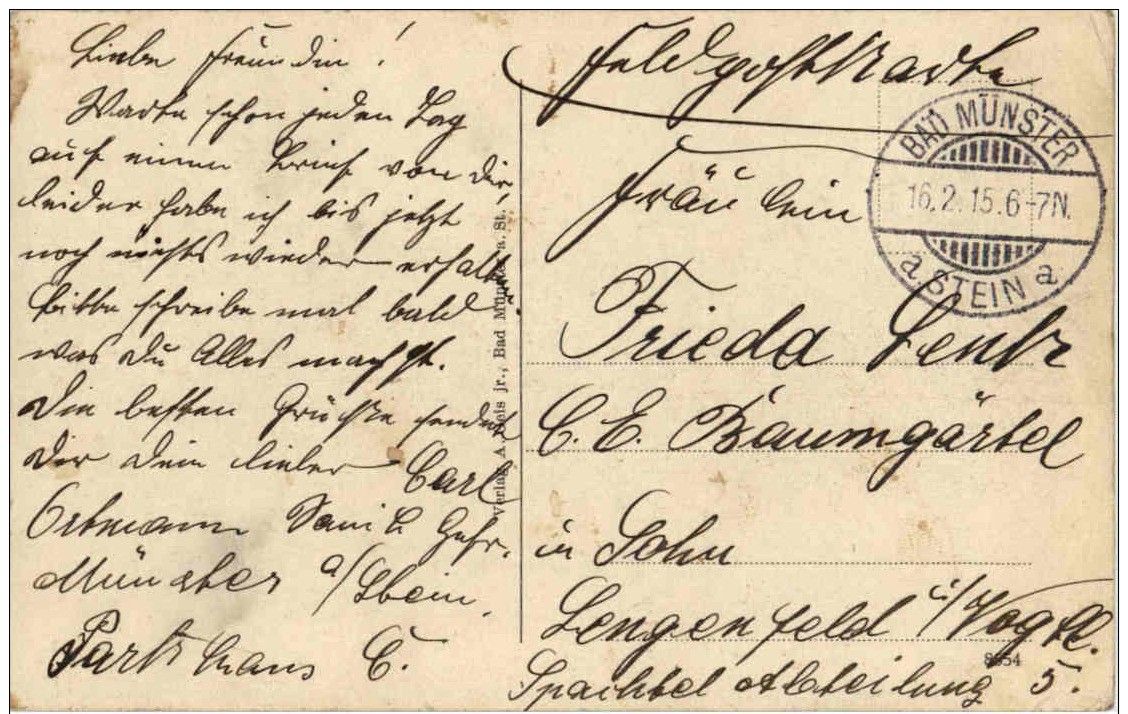 Liebe Freundin!
Warte schon jeden Tag
auf einen Brief von Dir,
leider habe ich bis jetzt
noch nichts wieder erhalten
bitte schreibe mal bald
was Du Alles machst.
Die besten Grüße sendet
Dir Dein lieber Carl
Ortmann Gefr.
Münster a/Stein.
Parkhaus C.
Verlag A. jr., Bad Münster a. St.
Feldpostkarte
BAD MÜNSTER
16.2.15.6-7N.
a STEIN a
Fräulein
Frieda Lentz
C. E. Baumgärtel
in Sohn
Lengenfeld i/Vogtl.
8554
Spachtel Abteilung 5.